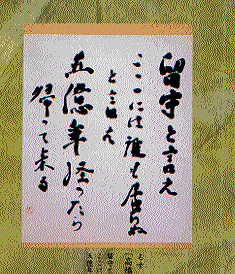 留守と言え
ここには誰も居らぬ
と言え
五億年経ったら
帰って来る